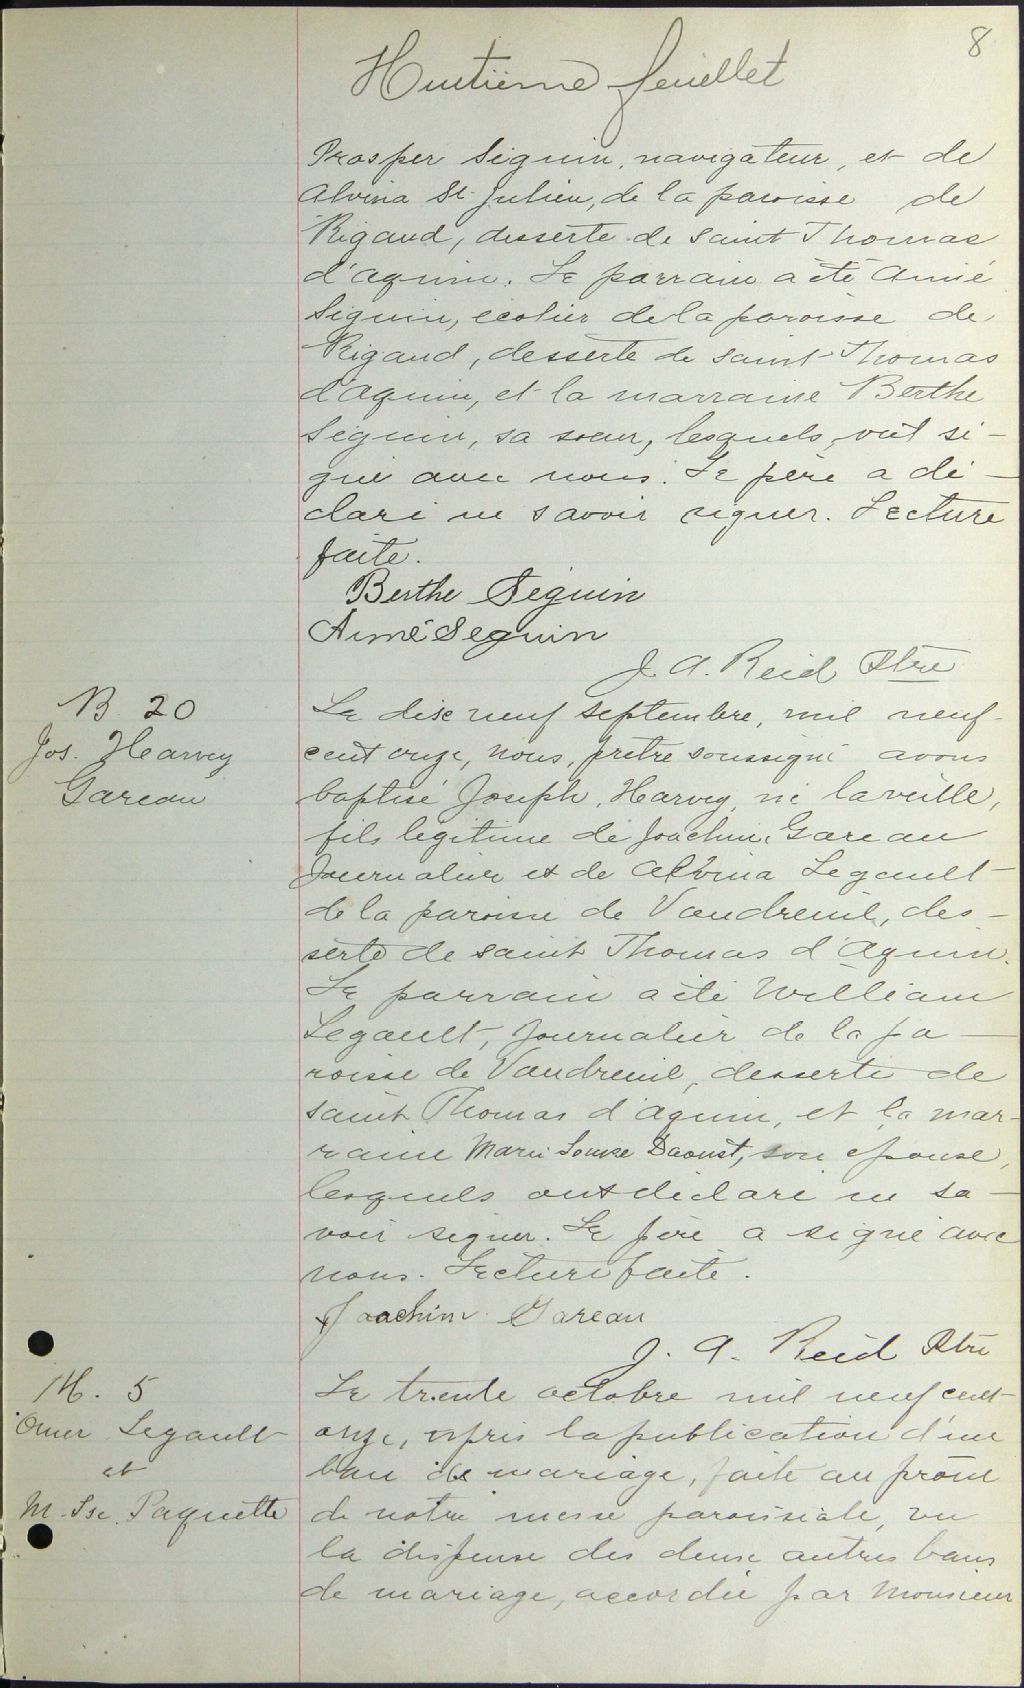 8
Huitième feuillet
Prosper Séguin, navigateur, et de
Alvina St Julien, de la paroisse de
Rigaud, desserte de saint Thomas
d'Aquin. Le parrain a été Aimé
Séguin, écolier de la paroisse de
Rigaud, desserte de saint Thomas
d'Aquin, et la marraine Berthe
Séguin, sa soeur, lesquels, ont si-
gné avec nous. Le père a dé-
claré ne savoir signer. Lecture
faite.
Berthe Séguin
Aimé Seguin
J. A. Reid Ptre
B 20
Jos. Hearvey
Gareau
Le dix neuf septembre, mil neuf-
cent onze, nous, prêtre soussigné avons
baptisé Joseph, Harvey, né la veille,
fils légitime de Joachim Gareau
Journalier et de Alvina Legault
de la paroisse de Vaudreuil, des-
serte de saint Thomas d'Aquin.
Le parrain a été William
Legault, Journalier de la pa-
roisse de Vaudreuil, desserte de
saint Thomas d'Aquin, et la mar-
raine Marie Louise Daoust, son épouse,
lesquels ont déclaré ne sa-
voir signer. Le père a signé avec
nous. Lecture faite.
Joachim Gareau
J. A. Reid Ptre
M. 5
Omer Legault
et
M. Lse. Paquette
Le trente octobre mil neuf cent
onze, après la publication d'un
ban de mariage, faite au prône
de notre messe paroissiale, vu
la dispense des deux autres bans
de mariage, accordée par Monsieur